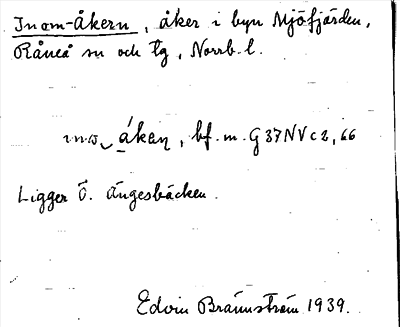 Inom-Åkern, åker i byn Mjöfjärden,
Råneå sn och tg, Norrb. l.
åkeɳ, bf. m. G 37 NV c 2, 66
Ligger Ö. Ängesbäcken.
Edvin Brännström 1939.